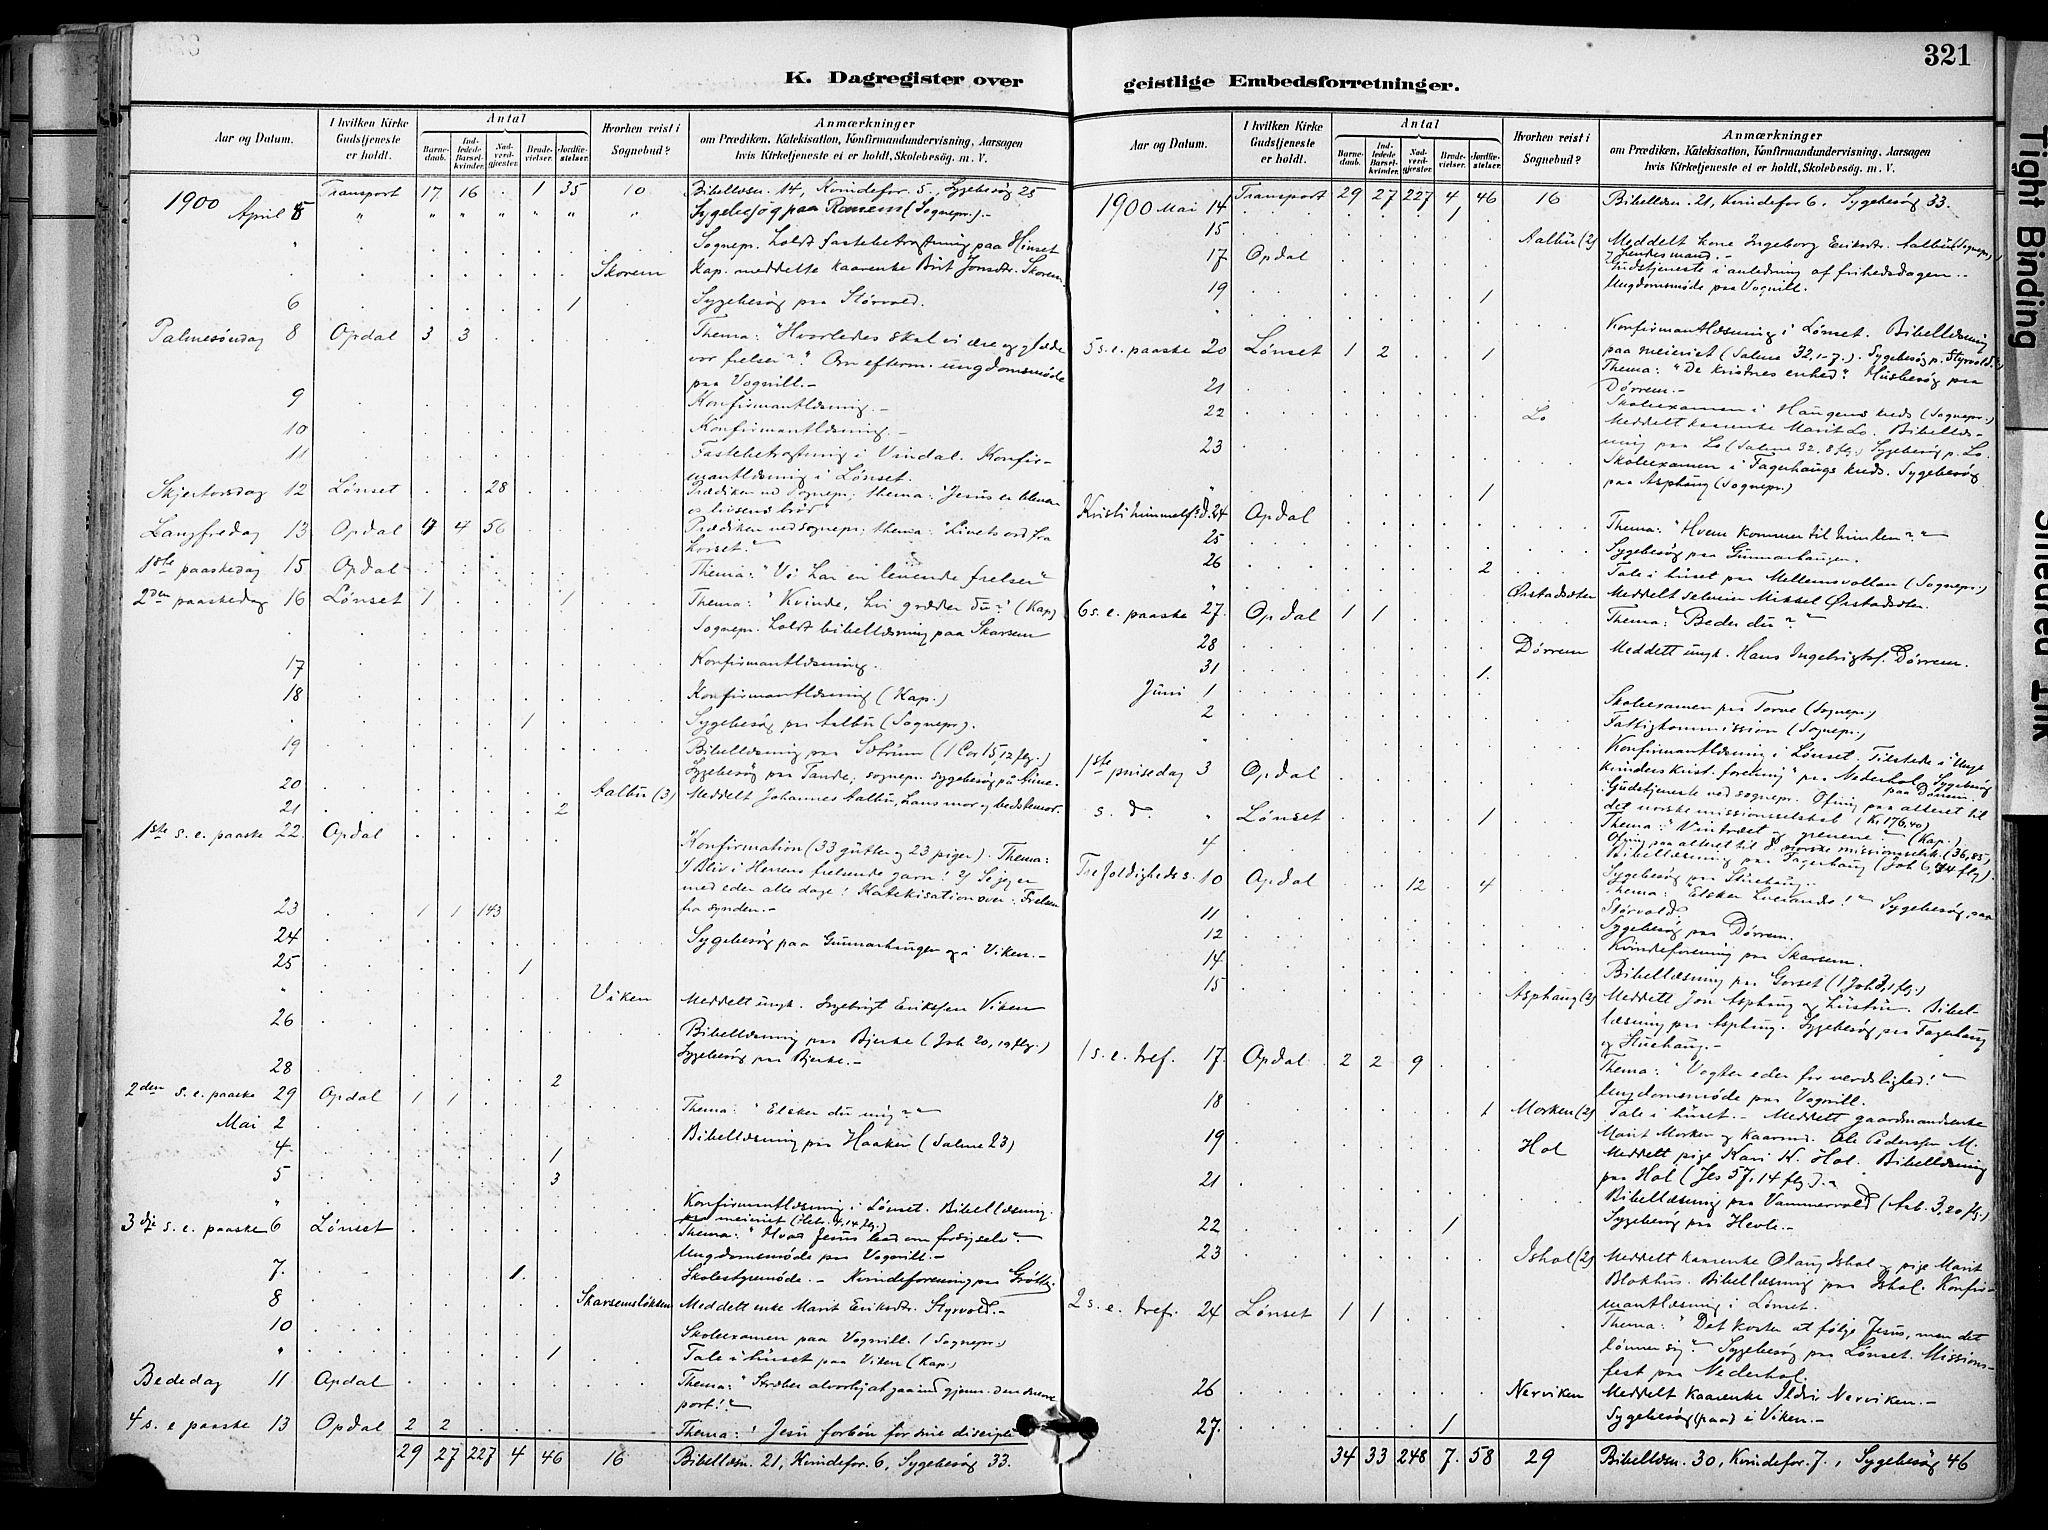 321
K. Dagregister over geistlige Embedsforretninger.
Aar og Datum. I hvilken Kirke Gudstjeneste er holdt. Antal Barnedaab. Indledede Barselkvinder. Nadverdgjester. Brudevielser. Jordfæstelser. Hvorhen reist i Sognebud? Anmærkninger
om Prædiken, Katekisation, Konfirmandundervisning, Aarsagen
hvis Kirketjeneste ei er holdt, Skolebesög. m. V.
1900 Transport 17 16 . 1 35 10 Bibellæsn. 14, Kvindefor. 5., Sygebesøg 25
April 5 " " " " " " " Sygebesøg paa (Sognepr.) -
" Sognepr. holdt fastebetragtning paa Hinset
Skorem Kap. meddelte kaarenke Brit Jonsdtr. Skorem.
6 1 Sygebesøg paa Størvold.
Palmesøndag 8 Opdal 3 3 Thema: "Hvorledes skal vi ære og glæde
vor frelser?" Om efterm. ungdomsmøde
paa Vognill. -
9 Konfirmantlæsning. -
10 Konfirmantlæsning. -
11 Fastebetragtning i Vindal. Konfir-
mantlæsning i Lønset.
Skjertorsdag 12 Lønset . . 28 Prædiken ved Sognepr; thema: "Jesus er
livsens brød"
Langfredag 13 Opdal 4 4 56 Prædiken ved sognepr; thema: "Livets ord fra
korset."
1ste paaskedag 15 Opdal Thema: "Vi har en levende frelser"
2den paaskedag 16 Lønset 1 1 Thema: "Kvinde, hvi græder du?" (Kap)
Sognepr. holdt bibellæsning paa Skarsem
17 Konfirmantlæsning.
18 Konfirmantlæsning (Kap.)
1 Sygebesøg paa Aalbu (Sognepr.).
19 Bibellæsning paa Sætrum (1 Cor 15, 12 flg.)
20 Sygebesøg paa Tande; sognepr. sygebesøg på
21 2 Aalbu (3) Meddelt Johannes Aalbu, hans mor og bedstemor.
1ste s. e. paaske 22 Opdal Konfirmation (33 gutter og 23 piger). Thema:
1) Bliv i Herrens frelsende garn! 2) Se jeg er
med eder alle dage! Katekisation over: Frelsen
23 1 1 143 fra synden. -
24 Sygebesøg paa Gunnarhaugen og i Viken. -
25 1
" Viken Meddelt ungk. Ingebrigt Eriksen Viken
26 Bibellæsning paa Bjerke (Joh 20, 19 flg.)
Sygebesøg paa Bjerke. -
28 2
2den s. e. paaske 29 Opdal 1 1 Thema: "Elsker du mig?"
Mai 2 Bibellæsning paa Haaker (Salme 23)
4 1
5 3
" Konfirmantlæsning i Lønset. Bibellæsning
paa meieriet (Hebr. 4, 14 flg.)
3die s. e. paaske 6 Lønset Thema: "Hvad Jesus bad om for sig selv".
Ungdomsmøde paa Vognill. -
7. 1. Skolestyremøde. - Kvindeforening paa Grøtte
8 Skarsemsløkken Meddelt enke Marit Eriksdtr. Styrvold. -
10 Skoleexamen paa Vognill. (Sognepr.)
" 1 Tale i huset paa Viken (Kap.)
Bededag 11 Opdal Thema: "Stræber alvorlig at gaa ind gjenn. den snevre
port!"
4 s. e paaske 13 Opdal 2 2 Thema: "Jesu forbøn for sine discipl
29 27 227 4 46 16 Bibellæsn. 21, Kvindefor. 6, Sygebesøg 33.
Aar og Datum. I hvilken Kirke Gudstjeneste er holdt. Antal Barnedaab. Indledede Barselkvinder. Nadverdgjester. Brudevielser. Jordfæstelser. Hvorhen reist i Sognebud? Anmærkninger
om Prædiken, Katekisation, Konfirmandundervisning, Aarsagen
hvis Kirketjeneste ei er holdt, Skolebesög. m. V.
1900 Mai 14 Transport 29 27 227 4 46 16 Bibellæsn. 21, Kvindefor 6, Sygebesøg 33.
1
15 Aalbu (2) Meddelt kone Ingeborg Eriksdtr. Aalbu (Sognepr)
og hendes mand. -
17 Opdal Gudstjeneste i anledning af frihedsdagen. -
19 1 Ungdomsmøde paa Vognill.
" Konfirmantlæsning i Lønset. Bibellæsning
paa meieriet (Salme 32, 1-7.). Sygebesøg p. Styrvold
5 s. e. paaske 20 Lønset 1 2 . . 1 Thema: "De kristnes enhed". Husbesøg paa
Dørrem. -
21 Skoleexamen i Haugens kreds (Sognepr.)
22 Lo Meddelt kaarenke Marit Lo. Bibellæs-
ning paa Lo (Salme 32, 8 flg.) Sygebesøg p. Lo.
23 Skoleexamen i Fagerhaugs kreds. Sygebesøg
" 1 paa Asphaug (Sognepr.)
Kristi himmelf.d. 24 Opdal Thema: "Hvem kommer til himlen?"
25 Sygebesøg paa Gunnarhaugen.
26 2 Tale i huset paa Mellemsvoltan (Sognepr.)
" Ørstadsæter Meddelt selveier Mikkel Ørstadsæter.
6 s. e. paaske 27. Opdal 1 1 Thema: "Beder du?"
28 Dørrem Meddelt ungk. Hans Ingebrigts. Dørrem.
31 1.
Juni 1 Skoleexamen paa Torve (Sognepr.)
2 Fattigkommission (Sognepr.)
" Konfirmantlæsning i Lønset. Tilstede i "Unge
kvinders krist. forening" paa Nederhol. Sygebesøg
paa Dørrem.
1ste pinsedag 3 Opdal Gudstjeneste ved sognepr. Ofring paa alteret til
det norske missionsselskab (Kr 176,40)
s. d. " Lønset 1 Thema: "Vintræet og grenene" (Kap.)
Ofring paa alteret til d. norske missionsselsk. (36,85)
4 Bibellæsning paa Fagerhaug (Joh 6, 44 flg).
Sygebesøg paa
Trefoldigheds s. 10 Opdal . . 12 . 4 Thema: "Elsker hverandre!" Sygebesøg paa
Størvold.
11 Sygebesøg paa Dørrem.
12 Kvindeforening paa Skarsem.
14 Bibellæsning paa Gorset (1 Joh 3, 1 flg.)
15 Asphaug (2) Meddelt Jon Asphaug og hustru. Bibel-
læsning paa Asphaug. Sygebesøg paa Fagerhaug
og Huehaug. -
1 s. e. tref. 17. Opdal 2 2 9 Thema: "Vogter eder for verdslighed!"
Ungdomsmøde paa Vognill.
18 1 Morken (2) Tale i huset. - Meddelt gaardmandsenke
Marit Morken og kaarmd. Ole Pedersen M.
19 Hol Meddelt pige Kari K. Hol. Bibellæsning
paa Hol (Jes 57, 14 flg). -
21 Bibellæsning paa Vammervold (Aab. 3, 20 flg.)
22 1 Sygebesøg paa Hevle. -
23 Ishol (2) Meddelt kaarenke Olaug Ishol og pige Marit
Blokhus. Bibellæsning paa Ishol. Konfir-
mantlæsning i Lønset.
2 s. e. tref. 24 Lønset 1 1 Thema: "Det koster at følge Jesus, men det
lønner sig". Sygebesøg paa Lønset. Missions-
fest paa Nederhol.
26 Nerviken Meddelt kaarenke Ildri Nerviken. -
27. 1 Sygebesøg (paa) i Viken. -
34 33 248 7. 58 29 Bibellæsn. 30, Kvindefor. 7., Sygebesøg 46
Tight Binding